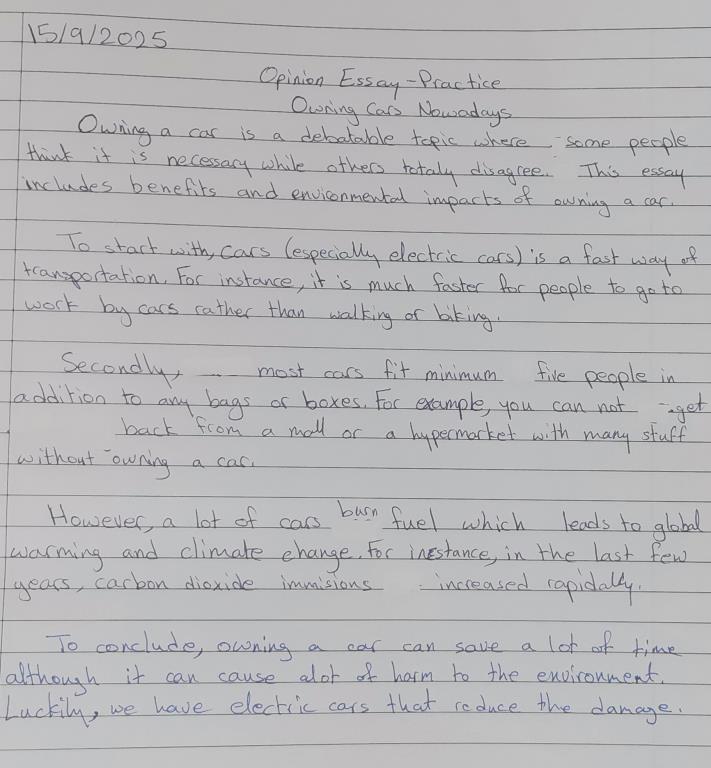 15/9/2025
Opinion Essay-Practice
Owning Cars Nowadays
Owning a car is a debatable topic where some people
think it is necessary while others totaly disagree. This essay
includes benefits and environmental impacts of owning a car.
To start with, cars (especially electric cars) is a fast way of
transportation. For instance, it is much faster for people to go to
work by cars rather than walking or biking.
Secondly, most cars fit minimum five people in
addition to any bags or boxes. For example, you can not get
back from a mall or a hypermarket with many stuff
without owning a car.
However, a lot of cars burn fuel which leads to global
warming and climate change. For inestance, in the last few
years, carbon dioxide immisions increased rapidally.
To conclude, owning a car can save a lot of time
although it can cause alot of harm to the environment.
Luckily, we have electric cars that reduce the damage.